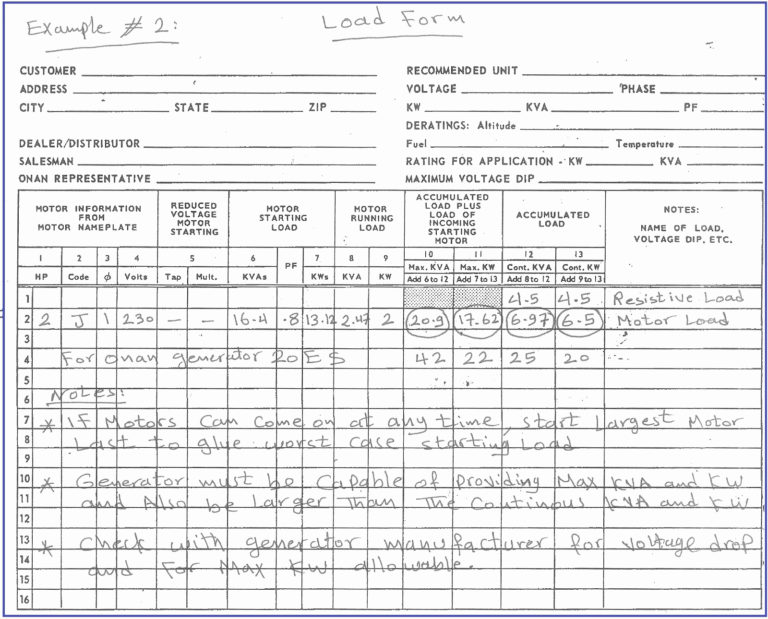 Example # 2:
Load Form
CUSTOMER
RECOMMENDED UNIT
ADDRESS
VOLTAGE PHASE
CITY STATE ZIP
KW KVA PF
DERATINGS: Altitude
DEALER/DISTRIBUTOR
Fuel Temperature
SALESMAN
RATING FOR APPLICATION - KW KVA
ONAN REPRESENTATIVE
MAXIMUM VOLTAGE DIP
MOTOR INFORMATION FROM MOTOR NAMEPLATE
REDUCED VOLTAGE MOTOR STARTING
MOTOR STARTING LOAD
MOTOR RUNNING LOAD
ACCUMULATED LOAD PLUS LOAD OF INCOMING STARTING MOTOR
ACCUMULATED LOAD
NOTES:
NAME OF LOAD, VOLTAGE DIP, ETC.
1 2 3 4 5 6 PF 7 8 9 10 11 12 13
HP Code ϕ Volts Tap Mult. KVAs KWs KVA KW Max. KVA Max. KW Cont. KVA Cont. KW
Add 6 to 12 Add 7 to 13 Add 8 to 12 Add 9 to 13
1 4.5 4.5 Resistive Load
2 2 J 1 230 — — 16.4 .8 13.12 2.47 2 20.9 17.62 6.97 6.5 Motor Load
3
4 For onan generator 20 ES 42 22 25 20
5
6 Notes:
7 * If Motors Can come on at any time, start Largest Motor
8 Last to give worst case starting Load
9
10 * Generator must be Capable of Providing Max KVA and KW
11 and Also be larger Than The Continous KVA and KW
12
13 * Check with generator manufacturer for voltage drop
14 and For Max KW allowable.
15
16